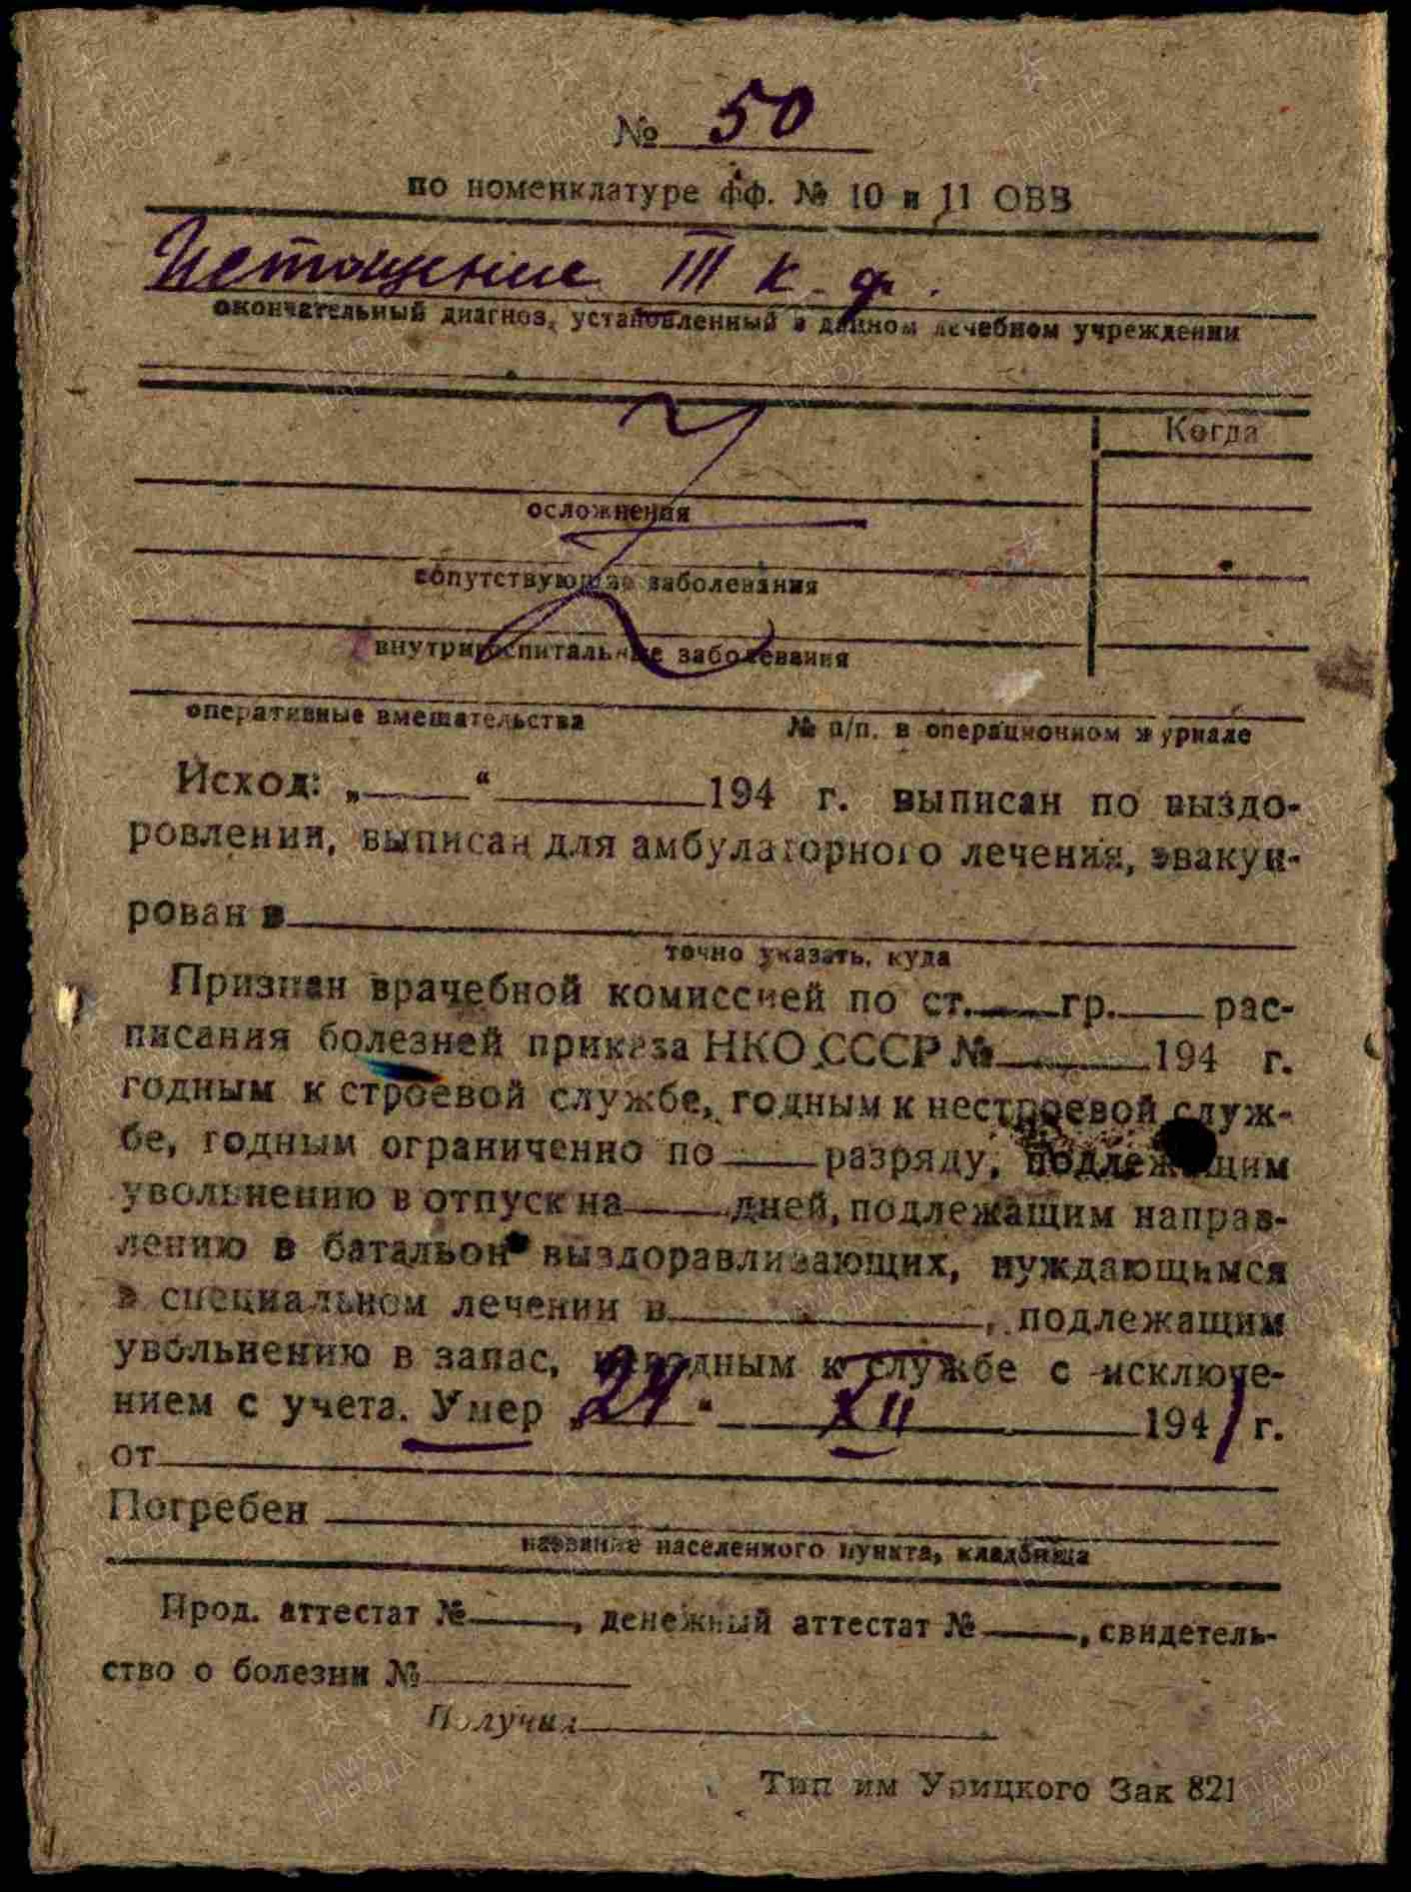 № 50
по номенклатуре фф. № 10 и 11 ОВВ
Истощение III к. ф.
окончательный диагноз, установленный в данном лечебном учреждении
Когда
осложнения
сопутствующие заболевания
внутригоспитальные заболевания
оперативные вмешательства № п/п. в операционном журнале
Исход: „ “ 194 г. выписан по выздо-
ровлении, выписан для амбулаторного лечения, эвакуи-
рован в
точно указать, куда
Признан врачебной комиссией по ст. гр. рас-
писания болезней приказа НКО СССР № 194 г.
годным к строевой службе, годным к нестроевой служ-
бе, годным ограниченно по разряду, подлежащим
увольнению в отпуск на дней, подлежащим направ-
лению в батальон выздоравливающих, нуждающимся
в специальном лечении в , подлежащим
увольнению в запас, негодным к службе с исключе-
нием с учета. Умер „24“ XII 1941 г.
от
Погребен
название населенного пункта, кладбища
Прод. аттестат № , денежный аттестат № , свидетель-
ство о болезни №
Получил
Тип им Урицкого Зак 821
ПАМЯТЬ НАРОДА